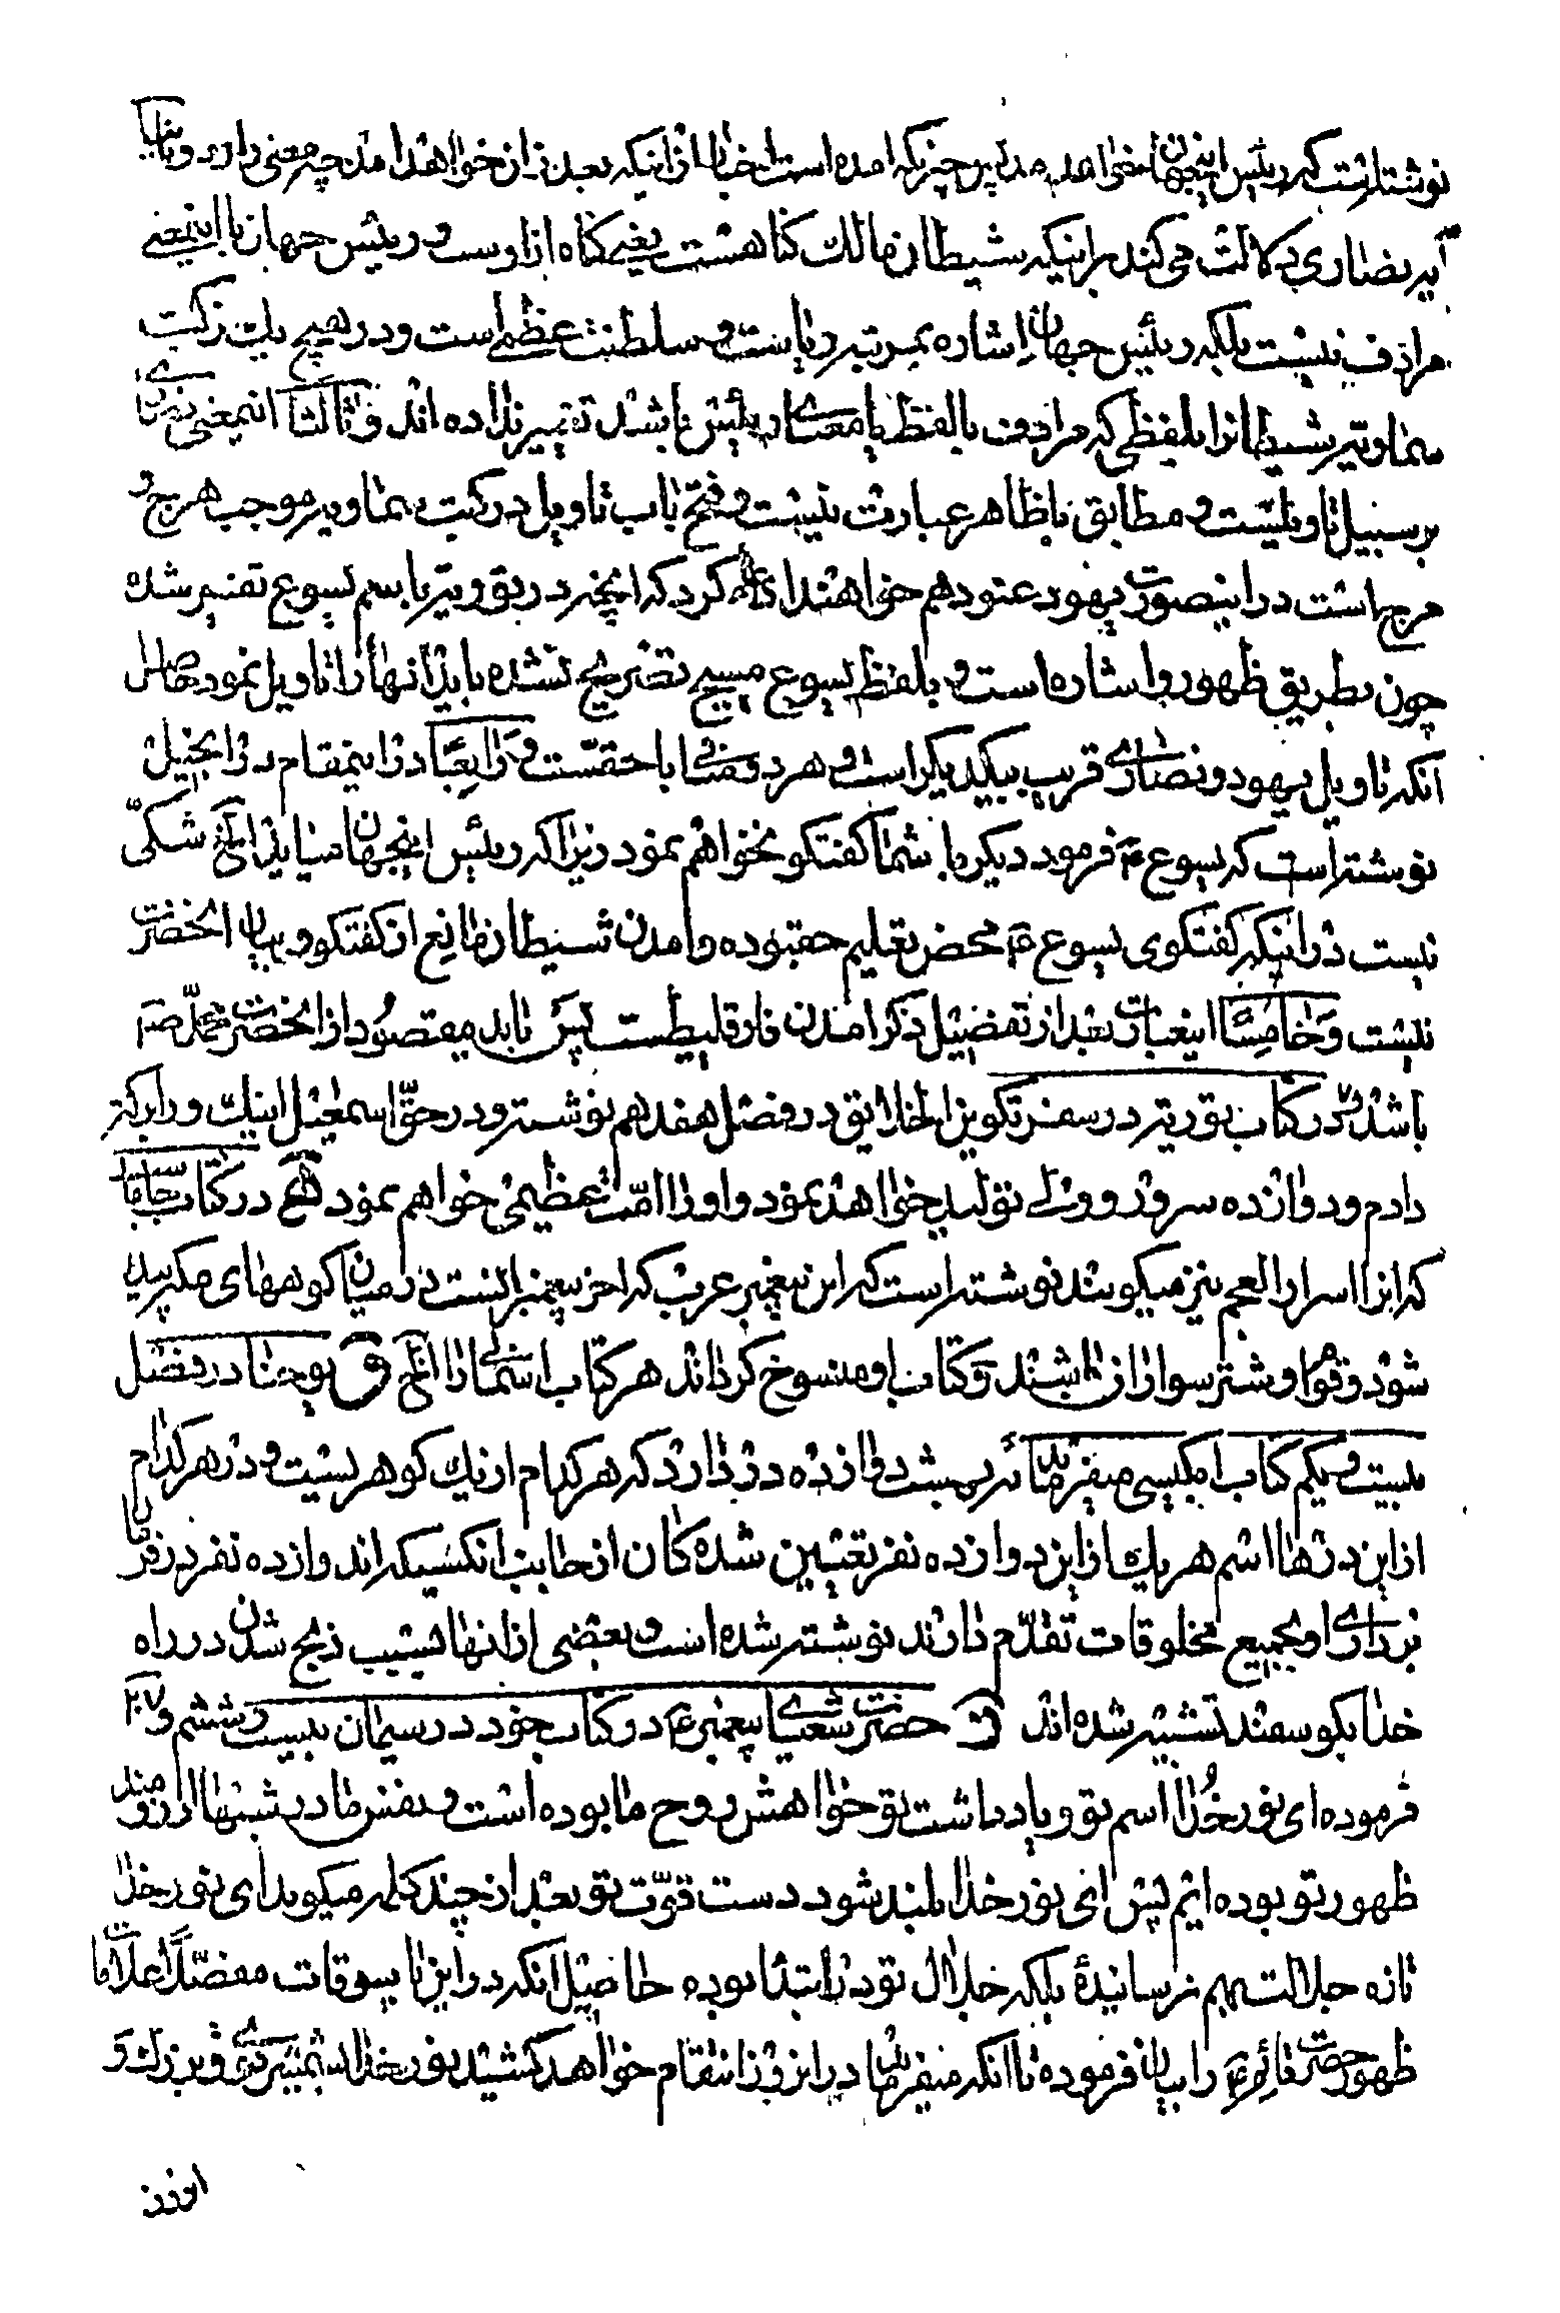 نوشته است که رئیس اینجهان خواهد آمد پس چیزیکه آمده است اخبار از اینکه بعد از آن خواهد آمد چه معنی دارد و ثانیا
آیه نصاری دلالت می کند براینکه شیطان مالك کناهست یعنی کناه از اوست و رئیس جهان با اینمعنی
مرادف نیست بلکه رئیس جهان اشاره بمرتبه ریاست و سلطنت عظمی است و در هیچ یك از کتب
سماویه شیطانرا بلفظی که مرادف با لفظ یا معنای رئیس باشد تعبیر نداده اند و ثالثا اینمعنی
بر سبیل تاویلست و مطابق با ظاهر عبارت نیست و فتح باب تاویل در کتب سماویه موجب هرج و
مرج است در اینصورت یهود عنود هم خواهند ادعا کرد که آنچه در توریة باسم یسوع تعبیر شده
چون بطریق ظهور و اشاره است و بلفظ یسوع مسیح تصریح نشده باید آنها را تاویل نمود حاصل
آنکه تاویل یهود و نصاری قریب بیکدیکر است و هر دو منافی با حقست و رابعا در اینمقام در انجیل
نوشته است که یسوع ع فرمود دیکر با شما کفتکو نخواهم نمود زیرا که رئیس اینجهان میاید الخ شکی
نیست در اینکه کفتکوی یسوع ع محض تعلیم حق بوده و آمدن شیطان مانع از کفتکو و بیان آنحضرت
نیست و خامسا اینعبارت بعد از تفضیل ذکر آمدن فارقلیط است پس باید مقصود از آنحضرت محمد ص
باشد و در کتاب توریة در سفر تکوین الخلایق در فصل هفدهم نوشته و در حق اسمعیل اینك ورا برکة
دادم و دوازده سرور ووی تولید خواهد نمود و او را امت عظیمی خواهم نمود الخ در کتاب جاماسب
که آنرا اسرار العجم نیز میکویند نوشته است که این پیغمبر عرب که آخر پیغمبرانست در میان کوههای مکه پیدا
شود و قوم او شتر سواران باشند و کتاب او منسوخ کرداند هر کتاب آسمانی را الخ و یوحنا در فصل
بیست و یکم کتاب ایکلیسی میفرماید که بهشت دوازده در دارد که هر کدام از یك کوهریست و در هر کدام
از این درها اسم هر یك از این دوازده نفر تعیین شده کان از جانب آنکسیکه این دوازده نفر در فرمان
برداری او بجمیع مخلوقات تقدم دارند نوشته شده است و بعضی از آنها بسبب ذبح شدن در راه
خدا بکوسفند تشبیه شده اند و حضرت شعیای پیغمبر ع در کتاب خود در سیمان بیست و ششم و ۲۷
فرموده ای نور خدا اسم تو و یادداشت تو خواهش روح ما بوده است و نفس ما در شبها آرزومند
ظهور تو بوده ایم پس ای نور خدا بلند شود دست قوت تو بعد از چند کلمه میکوید ای نور خدا
تازه جلالت بهم نرسانیدۀ بلکه جلال تو در ابتدا بوده حاصل آنکه در این پاسوقات مفصلا علامات
ظهور حضرت قائم ع را بیان فرموده تا آنکه میفرماید در این روز انتقام خواهد کشید نور خدا بشمشیر و بزرك و